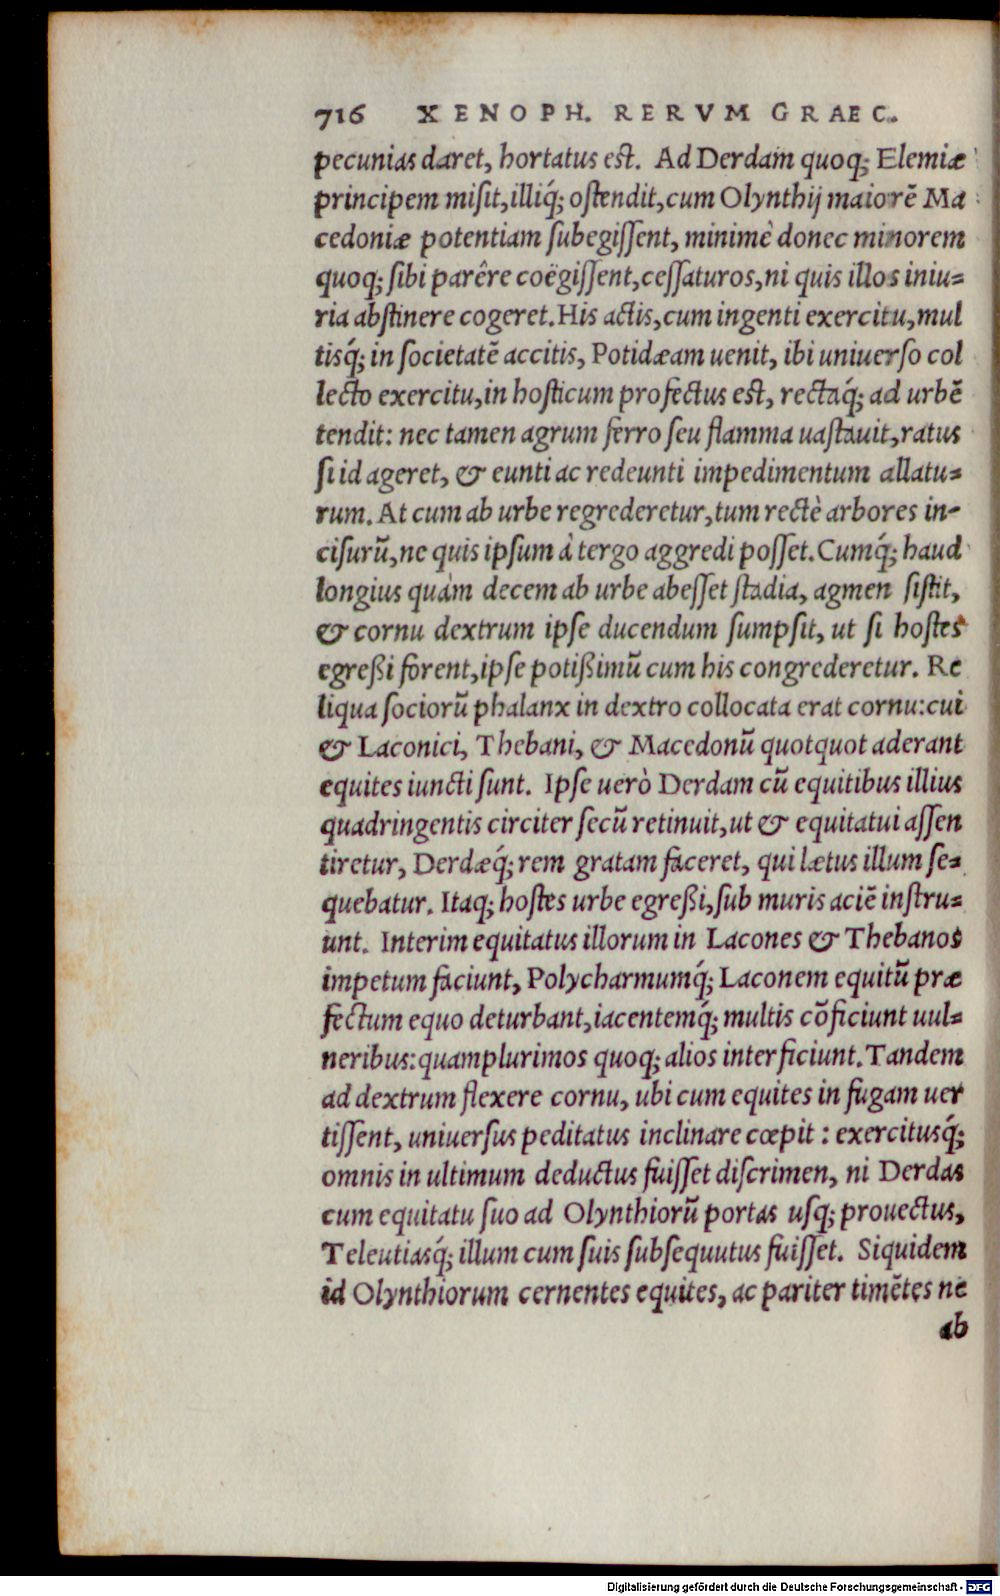 716 XENOPH. RERVM GRAEC.
pecunias daret, hortatus est. Ad Derdam quoq; Elemiæ
principem misit, illiq́; ostendit, cum Olynthij maiorē Ma
cedoniæ potentiam subegissent, minimè donec minorem
quoq; sibi parêre coëgissent, cessaturos, ni quis illos iniu-
ria abstinere cogeret. His actis, cum ingenti exercitu, mul
tisq́; in societatē accitis, Potidæam uenit, ibi uniuerso col
lecto exercitu, in hosticum profectus est, rectaq́; ad urbē
tendit: nec tamen agrum ferro seu flamma uastauit, ratus
si id ageret, & eunti ac redeunti impedimentum allatu-
rum. At cum ab urbe regrederetur, tum rectè arbores in-
cisurū, ne quis ipsum à tergo aggredi posset. Cumq́; haud
longius quàm decem ab urbe abesset stadia, agmen sistit,
& cornu dextrum ipse ducendum sumpsit, ut si hostes
egreßi forent, ipse potißimū cum his congrederetur. Re
liqua sociorū phalanx in dextro collocata erat cornu: cui
& Laconici, Thebani, & Macedonū quotquot aderant
equites iuncti sunt. Ipse uerò Derdam cū equitibus illius
quadringentis circiter secū retinuit, ut & equitatui assen
tiretur, Derdæq́; rem gratam faceret, qui lætus illum se-
quebatur. Itaq; hostes urbe egreßi, sub muris aciē instru-
unt. Interim equitatus illorum in Lacones & Thebanos
impetum faciunt, Polycharmumq́; Laconem equitū præ
fectum equo deturbant, iacentemq́; multis cōficiunt uul-
neribus: quamplurimos quoq; alios interficiunt. Tandem
ad dextrum flexere cornu, ubi cum equites in fugam uer
tissent, uniuersus peditatus inclinare cœpit : exercitusq́;
omnis in ultimum deductus fuisset discrimen, ni Derdas
cum equitatu suo ad Olynthiorū portas usq; prouectus,
Teleutiasq́; illum cum suis subsequutus fuisset. Siquidem
id Olynthiorum cernentes equites, ac pariter timētes ne
ab
Digitalisierung gefördert durch die Deutsche Forschungsgemeinschaft - DFG